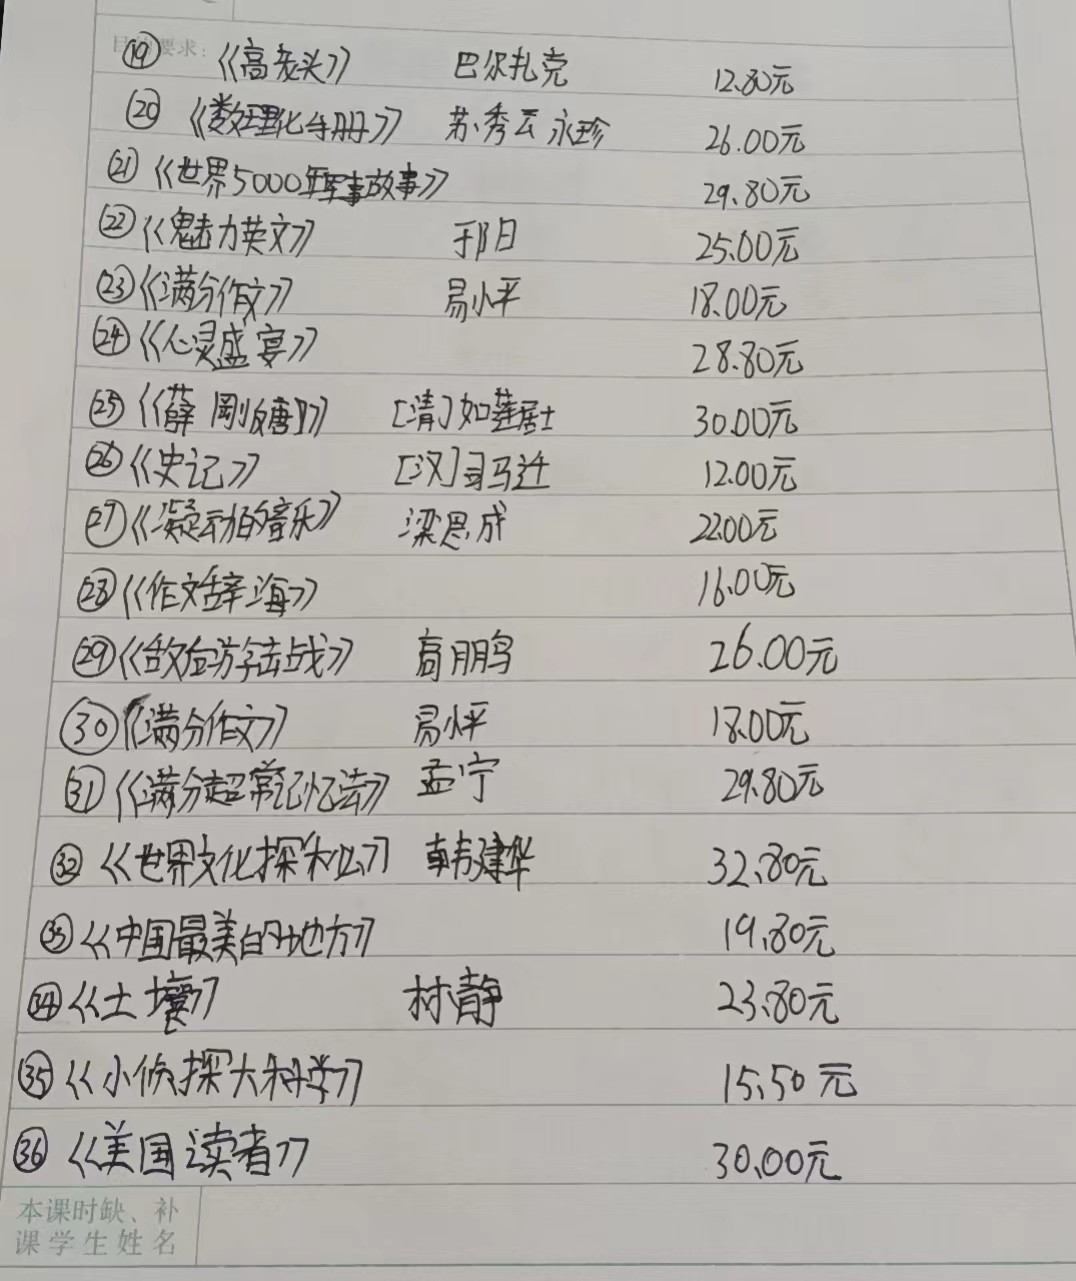 目的要求:
⑲ 《高老头》 巴尔扎克 12.80元
⑳ 《数理化手册》 苏秀云 永珍 26.00元
㉑ 《世界5000年军事故事》 29.80元
㉒ 《魅力英文》 邘日 25.00元
㉓ 《满分作文》 易小平 18.00元
㉔ 《心灵盛宴》 28.80元
㉕ 《薛刚反唐》 [清]如莲居士 30.00元
㉖ 《史记》 [汉]司马迁 12.00元
㉗ 《凝动的音乐》 梁思成 22.00元
㉘ 《作文辞海》 16.00元
㉙ 《敌后游击战》 高朋 26.00元
㉚ 《满分作文》 易小平 18.00元
㉛ 《满分超常记忆法》 孟宁 29.80元
㉜ 《世界文化探秘》 韩建华 32.80元
㉝ 《中国最美的地方》 19.80元
㉞ 《土壤》 林静 23.80元
㉟ 《小侦探大科学》 15.50元
㊱ 《美国读者》 30.00元
本课时缺、补
课学生姓名